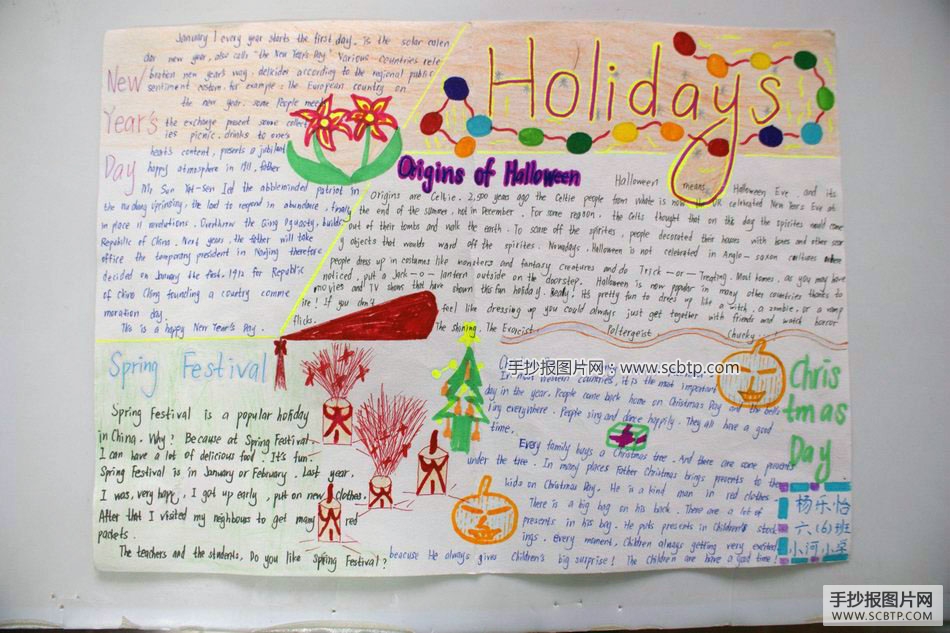 Holidays
New
Year's
Day
January 1 every year starts the first day, is the solar calen
dar new year, also calls "the New Year's Day". Various countries cele
bration new year's way, delcider according to the regional public
sentiment custom. for example: the European country on
the new year. some People meet
the exchange present some collect
ies picnic, drinks to one's
heart's content, presents a jubilant
happy atmosphere in 1911, father
Mr Sun Yat-Sen led the ableminded patriot in
the Wuchang Uprinting, the lead to respond in abundance, finally
in place 11 revolutions. Overthrew the Qing Dynasty, builds
Republic of China. Next years, the father will take
office the temporary president in Nanjing therefore
decided on January the first, 1912 for Republic
of China Ching founding a country comme
moration day.
This is a happy New Year's Day.
Origins of Halloween
Halloween means Halloween Eve, and its
Origins are Celtic. 2,500 years ago the Celtic people from whate is now the UK celebrated New Years Eve at
the end of the summer, not in December. For some reason, the Celts thought that on this day the spirites would come
out of their tombs and walk the earth. To scare off the spirites, people decorated their houses with bones and other scar
y objects that would ward off the spirites. Nowadays, Halloween is not celebrated in Anglo-saxon cultures where
people dress up in costumes like monsters and fantasy creatures and do Trick-or-Treating. Most homes, as you may have
noticed, put a Jack-o-lantern outside on the doorstep. Halloween is now popular in many other countries thanks to
movies and TV shows that have shown this fun holiday. Really, it's pretty fun to dress up like a witch, a zombie, or a vamp
ire! If you don't feel like dressing up you could always just get together with friends and watch horror
flicks. The shining. The Exorcist. Poltergeist. Chucky.
Spring Festival
Spring Festival is a popular holiday
in China. Why? Because at Spring Festival
I can have a lot of delicious food. It's fun.
Spring Festival is in January or February. Last year,
I was very happy, I got up early, put on new clothes.
After that I visited my neighbours to get many red
packets.
The teachers and the students, Do you like Spring Festival?
Chris
tmas
Day
In most western countries, it is the most important
day in the year. People come back home on Christmas Day and the bells
ring everywhere. People sing and dance happily. They all have a good
time.
Every family buys a Christmas tree. And there are some presents
under the tree. In many places Father Christmas brings presents to the
kids on Christmas Day. He is a kind man in red clothes.
There is a big bag on his back. There are a lot of
presents in his bag. He puts presents in Children's stock
ings. Every moment, Children always getting very excited.
beacuse He always gives Children's big surprise! The Children are have a good time!
杨乐怡
六(6)班
小河小学
手抄报图片网:www.scbtp.com
手抄报图片网
WWW.SCBTP.COM